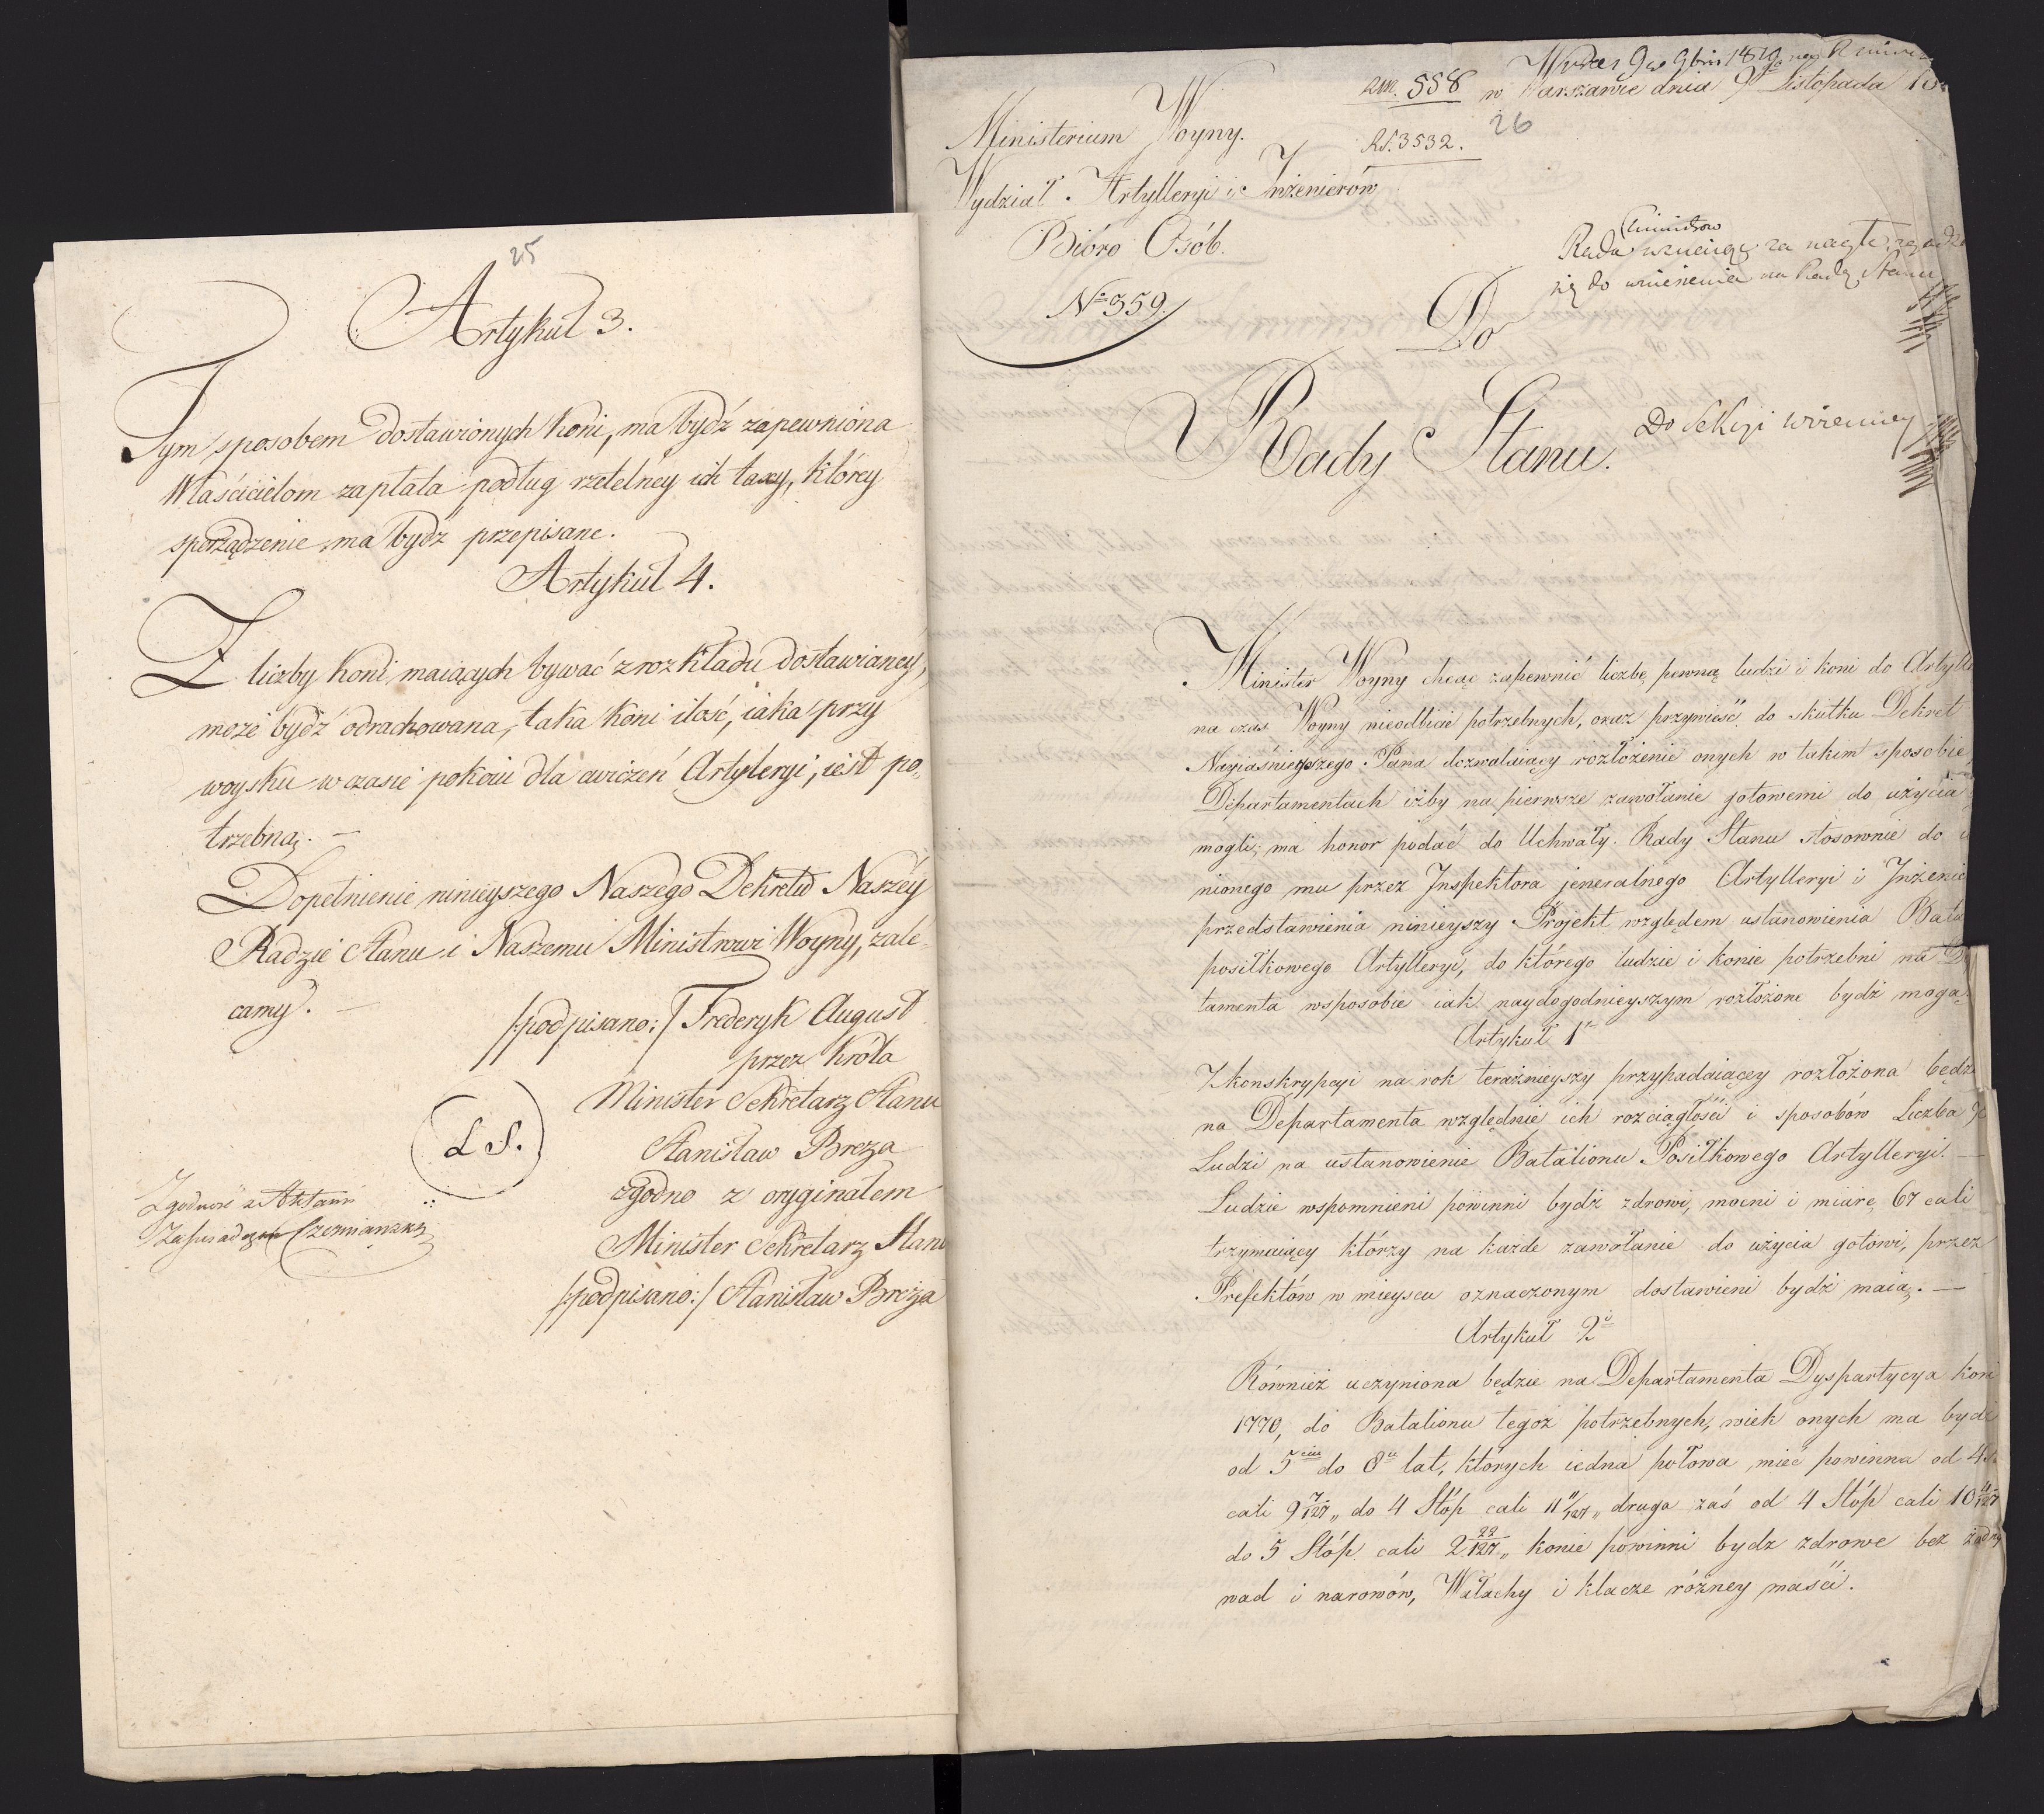 25
Artykuł 3.
Tym sposobem dostawionych koni, ma bydź zapewniona
Właścicielom zapłata podług rzetelnéy ich taxy, któréy
sporządzenie ma bydź przepisane.
Artykuł 4.
Z liczby koni maiących bywać z rozkładu dostawianey,
może bydź odrachowana, taka koni ilość, iaka przy
woysku w czasie pokoiu dla cwiczeń Artyleryi, iest po-
trzebną. —
Dopełnienie ninieyszego Naszego Dekretu Naszéy
Radzie Stanu i Naszemu Ministrowi Woyny, zale-
camy. —
/:podpisano:/ Frederyk August
przez Króla
Minister Sekretarz Stanu
L. S.
Stanisław Breza
zgodno z oryginałem
Minister Sekretarz Stanu
/:podpisano:/ Stanisław Breza
Zgodność z Aktami
Czermianski
w Warszawie dnia 9 Listopada
558
26
Ministerium Woyny.
3532.
Wydział Artylleryi i Inżenierów
Bióro Osób.
Nº 359.
Rada Ministrow
się do wniesienia na Radę Stanu
Do
Rady Stanu.
Do Sekcyi woienney
Minister Woyny chcąc zapewnić liczbę pewną ludzi i koni do Artylle
na czas Woyny nieodbicie potrzebnych, oraz przywieść do skutku Dekret
Nayiaśnieyszego Pana dozwalaiący rozłożenie onych w takim sposobie
Departamentach iżby na pierwsze zawołanie gotowemi do użycia
mogli; ma honor podać do Uchwały Rady Stanu stosownie do
nionego mu przez Inspektora jeneralnego Artylleryi i Inżenie
przedstawienia ninieyszy Projekt względem ustanowienia Bata
posiłkowego Artylleryi, do którego ludzie i konie potrzebni na D
tamenta wsposobie iak naydogodnieyszym rozłożone bydź mogą.
Artykuł 1
Z konskrypcyi na rok teraźnieyszy przypadaiącéy rozłożona będzi
na Departamenta względnie ich rozciągłości i sposobów Liczba
Ludzi na ustanowienie Batalionu Posiłkowego Artylleryi. —
Ludzie wspomnieni powinni bydź zdrowi, mocni i miarę 67 cali
trzymaiący którzy na każde zawołanie do użycia gotowi, przez
Prefektów w mieyscu oznaczonym dostawieni bydź maią. —
Artykuł 2
Również uczyniona będzie na Departamenta Dyspartycya koni
1770, do Batalionu tegoż potrzebnych, wiek onych ma bydź
od 5ciu do 8u lat, których iedna połowa mieć powinna od 4
cali 9 7/127 „ do 4 Stóp cali 11 11/127 „ druga zaś od 4 Stóp cali 10
do 5 Stóp cali 2 22/127 „ konie powinni bydź zdrowe bez żadny
wad i narowów, Wałachy i klacze różney maści.